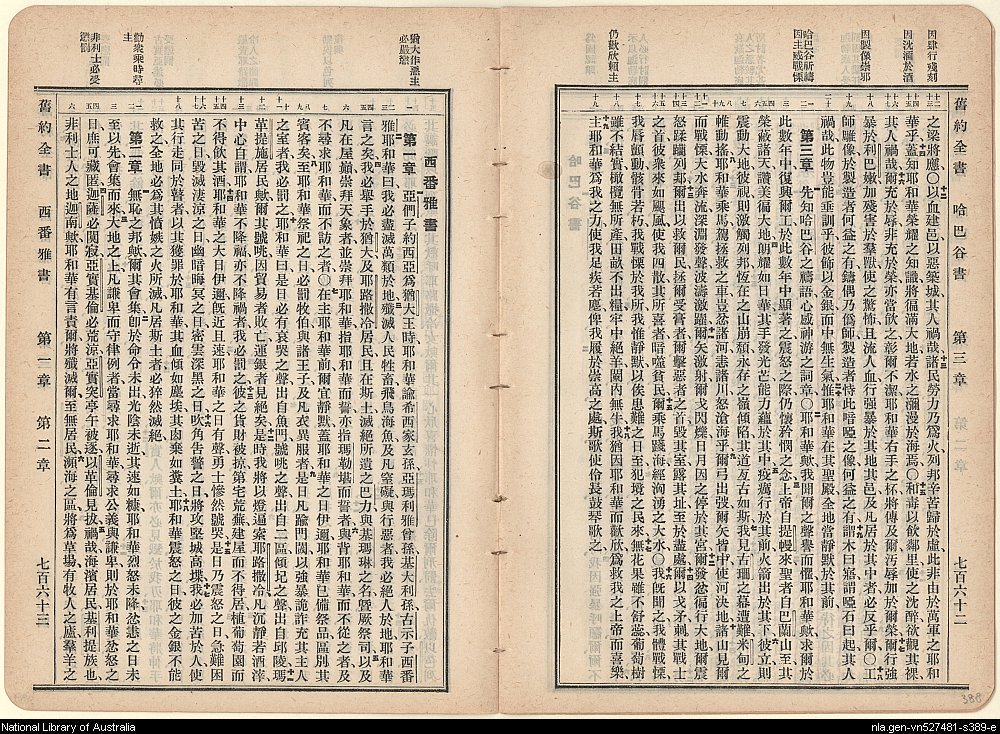 因肆行殘刻
因沈湎於酒
因製像崇邪
哈巴谷祈禱
因主威戰慄
仍歡欣賴主
舊約全書 哈巴谷書 第三章 七百六十二
之梁將應〇以血建邑以惡築城其人禍哉諸民勞力乃爲火列邦辛苦歸於虛此非由於萬軍之耶和
華乎蓋知耶和華榮耀之知識將徧滿大地若水之瀰漫於海焉〇和毒以飲鄰里使之沈醉欲觀其裸
其人禍哉爾充於辱非充於榮亦當飲之彰爾不潔耶和華右手之杯將傳及爾污辱加於爾榮爾行強
暴於利巴嫩加殘害於羣獸使之驚怖且流人血行强暴於其地其邑及凡居於其中者必反乎爾〇工
師雕像於製造者何益之有鑄偶乃僞師製造者恃此喑啞之像何益之有謂木曰寤謂啞石曰起其人
禍哉此物豈能垂訓乎彼飾以金銀而中無生氣惟耶和華在其聖殿全地當靜默於其前
第三章 先知哈巴谷之禱語心感神游之詞章〇耶和華歟我聞爾之聲譽而懼耶和華歟求爾於
此數年中復興爾工於此數年中顯著之震怒之際仍懷矜憫之念上帝自提幔來聖者自巴蘭山至其
榮蔽諸天讚美徧大地朗耀如日其手發光芒能力蘊於其中疫癘行於其前火箭出於其下彼立則
震動大地彼視則激觸列邦恆在之山崩頹永存之嶺傾陷其道亙古如斯我見古珊之幕遭難米甸之
帷搖撼耶和華歟爾乘馬駕拯救之車豈忿諸河恚諸川怒滄海乎爾弓出弢爾矢皆中使河決地諸山見爾
而戰慄大水奔流深淵發聲波濤激躍爾矢激射爾戈閃爍日月因之停於其宮爾發忿徧行大地爾震
怒蹂躪列邦爾出以救爾民拯爾受膏者爾擊惡者之首毀其室露其址至於盡處爾以戈矛刺其戰士
之首彼衆來如颶風使我四散其所喜者暗噬貧民爾乘馬踐海經洶湧之大水〇我旣聞之我體戰慄
我唇顫動我骸骨若朽我戰慄於我所我惟靜默以俟患難之日至犯境之民來無花果雖不舒蕊葡萄樹
雖不結實橄欖雖無所產田畝不出糧牢中絕羊圈內無牛我猶因耶和華而歡欣爲救我之上帝而喜樂
主耶和華爲我之力使我足疾若麀俾我履於崇高之處斯歌使伶長鼓琴歌之
猶大作慝主
必嚴懲
勸衆乘時尋
主
非利士必受
懲罰
西番雅書
第一章 亞們子約西亞爲猶大王時耶和華諭希西家玄孫亞瑪利雅曾孫基大利孫古示子西番
雅耶和華曰我必盡滅萬類於地殲滅人民牲畜飛鳥海魚及凡窒礙與行惡者我必絕人於地耶和華
言之矣我必舉手於猶大及耶路撒冷居民且在斯土滅絕所遺之巴力與基瑪琳之名曁厥祭司以及
凡在屋巔崇拜天象者並崇拜耶和華指耶和華而誓亦指瑪勒堪而誓者與背耶和華而不從之者及
不尋求耶和華而不訪之者〇在主耶和華前爾宜靜默蓋耶和華之日伊邇耶和華已備祭品區別其
賓客矣至耶和華祭祀之日必罰牧伯與諸王子及凡衣異服者是日凡踰門閾以強暴詭詐充其主人
之室者我必罰之耶和華曰是日必有哀哭之聲出自魚門號咷之聲出自二區傾圮之聲出自邱陵瑪
革提施居民歟爾其號咷因貿易者敗亡運銀者見絕矣是時我將以燈遍索耶路撒冷凡沉靜若酒滓
中心自謂耶和華不降福亦不降禍者我必罰之彼之貨財被掠第宅荒蕪建屋而不得居植葡萄園而
不得飲其酒耶和華之大日伊邇旣近且速耶和華之日有聲勇士慘然號哭是日乃震怒之日急難困
苦之日毀滅淒涼之日幽暗晦冥之日密雲深黑之日吹角告警之日將攻堅城高堞我必加苦於人使
其行走同於瞽者以其獲罪於耶和華其血傾如塵埃其肉棄如糞土耶和華震怒之日彼之金銀不能
救之全地必爲其憤嫉之火所滅凡居斯土者必猝然滅絕
第二章 無恥之邦歟爾其會集卽於命令未出光陰未逝其速如糠耶和華烈怒未降忿恚之日未
至以先會集而來大地之上凡謙卑而守律例者當尋求耶和華尋求公義與謙卑則於耶和華忿怒之
日庶可藏匿迦薩必闃寂亞實基倫必荒涼亞實突亭午被逐以革倫見拔禍哉海濱居民基利提族也
非利士人之地迦南歟耶和華有言責爾將殲滅爾至無居民濱海之區將爲草場有牧人之廬羣羊之
舊約全書 西番雅書 第一章 第二章 七百六十三
388
National Library of Australia
nla.gen-vn527481-s389-e